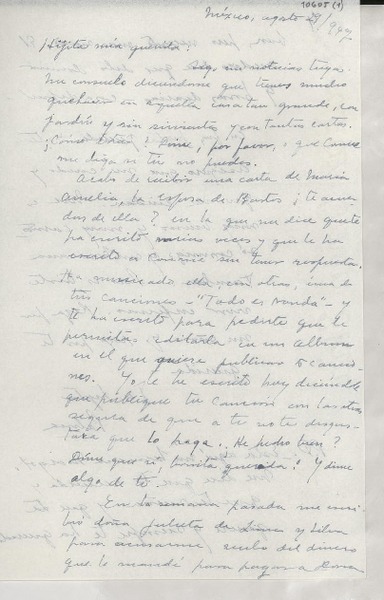 10605 (1)
México, agosto 29/947
¡Hijita mía querida!
Sigo sin noticias tuyas.
Me consuelo diciendome que tienes mucho
quehacer en aquella casa tan grande, con
jardín y sin sirvientes y con tantas cartas.
¡Cómo estás? Dime, por favor, o que Connie
me diga si tú no puedes.
Acabo de recibir una carta de María
Amelia, la esposa de Bustos, ¿te acuer-
das de ella? en la que me dice que te
ha escrito varias veces y que le ha
escrito a Connie sin tener respuesta.
Ha musicado ella con otras, una de
tus canciones - "Todo es ronda" - y
te ha escrito para pedirte que le
permitas editarla en un album
en el que quiere publicar 5 cancio-
nes. Yo le he escrito hoy diciéndole
que publique tu canción con las otras
segura de que a ti no te disgus-
tará que lo haga. ¿He hecho bien?
Dime que sí, bonita querida! Y dime
algo de ti.
En la semana pasada me escri-
bió doña Julieta de Lima y Silva
para acusarme recibo del dinero
que le mandé para pagar a